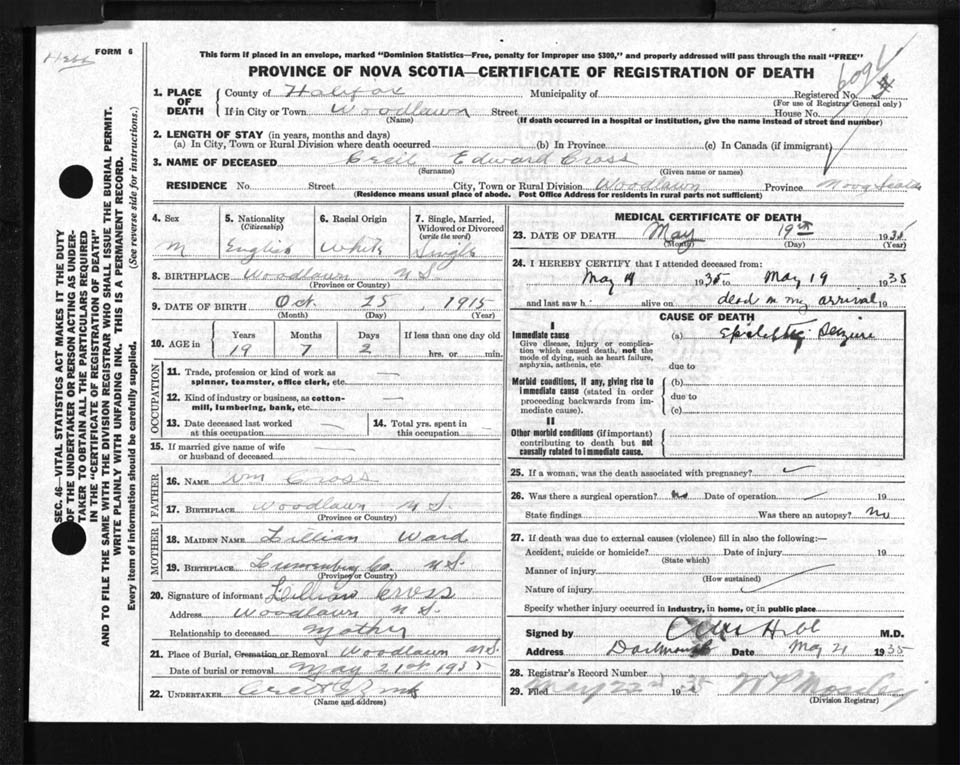 FORM 6
This form if placed in an envelope, marked "Dominion Statistics—Free, penalty for improper use $300," and properly addressed will pass through the mail "FREE"
PROVINCE OF NOVA SCOTIA—CERTIFICATE OF REGISTRATION OF DEATH
SEC. 46—VITAL STATISTICS ACT MAKES IT THE DUTY
OF THE UNDERTAKER OR PERSON ACTING AS UNDER-
TAKER TO OBTAIN ALL THE PARTICULARS REQUIRED
IN THE "CERTIFICATE OF REGISTRATION OF DEATH"
AND TO FILE THE SAME WITH THE DIVISION REGISTRAR WHO SHALL ISSUE THE BURIAL PERMIT.
WRITE PLAINLY WITH UNFADING INK. THIS IS A PERMANENT RECORD.
Every item of information should be carefully supplied. (See reverse side for instructions.)
1. PLACE OF DEATH
County of Halifax Municipality of Registered No.
(For use of Registrar General only)
If in City or Town Woodlawn Street House No.
(Name) (If death occurred in a hospital or institution, give the name instead of street and number)
2. LENGTH OF STAY (in years, months and days)
(a) In City, Town or Rural Division where death occurred (b) In Province (c) In Canada (if immigrant)
3. NAME OF DECEASED Cecil Edward Cross
(Surname) (Given name or names)
RESIDENCE No. Street City, Town or Rural Division Woodlawn Province Nova Scotia
(Residence means usual place of abode. Post Office Address for residents in rural parts not sufficient)
4. Sex 5. Nationality 6. Racial Origin 7. Single, Married,
(Citizenship) Widowed or Divorced
(write the word)
M English White Single
8. BIRTHPLACE Woodlawn N S
(Province or Country)
9. DATE OF BIRTH Oct. 25, 1915
(Month) (Day) (Year)
10. AGE in Years Months Days If less than one day old
19 7 2 hrs. or min.
OCCUPATION
11. Trade, profession or kind of work as
spinner, teamster, office clerk, etc. —
12. Kind of industry or business, as cotton-
mill, lumbering, bank, etc. —
13. Date deceased last worked 14. Total yrs. spent in
at this occupation — this occupation —
15. If married give name of wife
or husband of deceased —
FATHER
16. NAME Wm Cross
17. BIRTHPLACE Woodlawn N S.
(Province or Country)
MOTHER
18. MAIDEN NAME Lillian Ward
19. BIRTHPLACE Lunenburg Co. N S.
(Province or Country)
20. Signature of informant Lillian Cross
Address Woodlawn N S.
Relationship to deceased Mother
21. Place of Burial, Cremation or Removal Woodlawn N S.
Date of burial or removal May 21st 1935
22. UNDERTAKER
(Name and address)
MEDICAL CERTIFICATE OF DEATH
23. DATE OF DEATH May 19th 1935
(Month) (Day) (Year)
24. I HEREBY CERTIFY that I attended deceased from:
May 19 1935 to May 19 1935
and last saw h alive on dead on my arrival 19
CAUSE OF DEATH
I
Immediate cause (a) Seizure
Give disease, injury or complica-
tion which caused death, not the
mode of dying, such as heart failure,
asphyxia, asthenia, etc. due to
Morbid conditions, if any, giving rise to (b)
immediate cause (stated in order due to
proceeding backwards from im-
mediate cause). (c)
II
Other morbid conditions (if important)
contributing to death but not
causally related to immediate cause.
25. If a woman, was the death associated with pregnancy?
26. Was there a surgical operation? no Date of operation 19
State findings Was there an autopsy? no
27. If death was due to external causes (violence) fill in also the following:—
Accident, suicide or homicide? Date of injury 19
(State which)
Manner of injury
(How sustained)
Nature of injury
Specify whether injury occurred in industry, in home, or in public place
Signed by M.D.
Address Dartmouth Date May 21 1935
28. Registrar's Record Number
29. Filed May 22nd 1935
(Division Registrar)